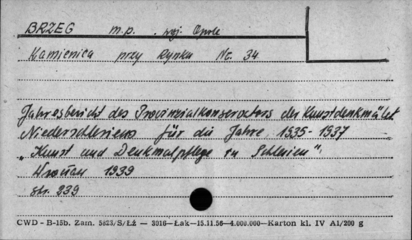 BRZEG m.p. woj. Opole
Kamienica przy Rynku Nr. 34
Jahresbericht des Provinzialkonservators der Kunstdenkmäler
Niederschlesiens für die Jahre 1935-1937
"Kunst und Denkmalpflege in Schlesien"
Wrocław 1939
str. 239
CWD - B-15b. Zam. 5823/S/ŁŻ — 3910—Łak—15.11.56—4.000.000—Karton kl. IV A1/200 g